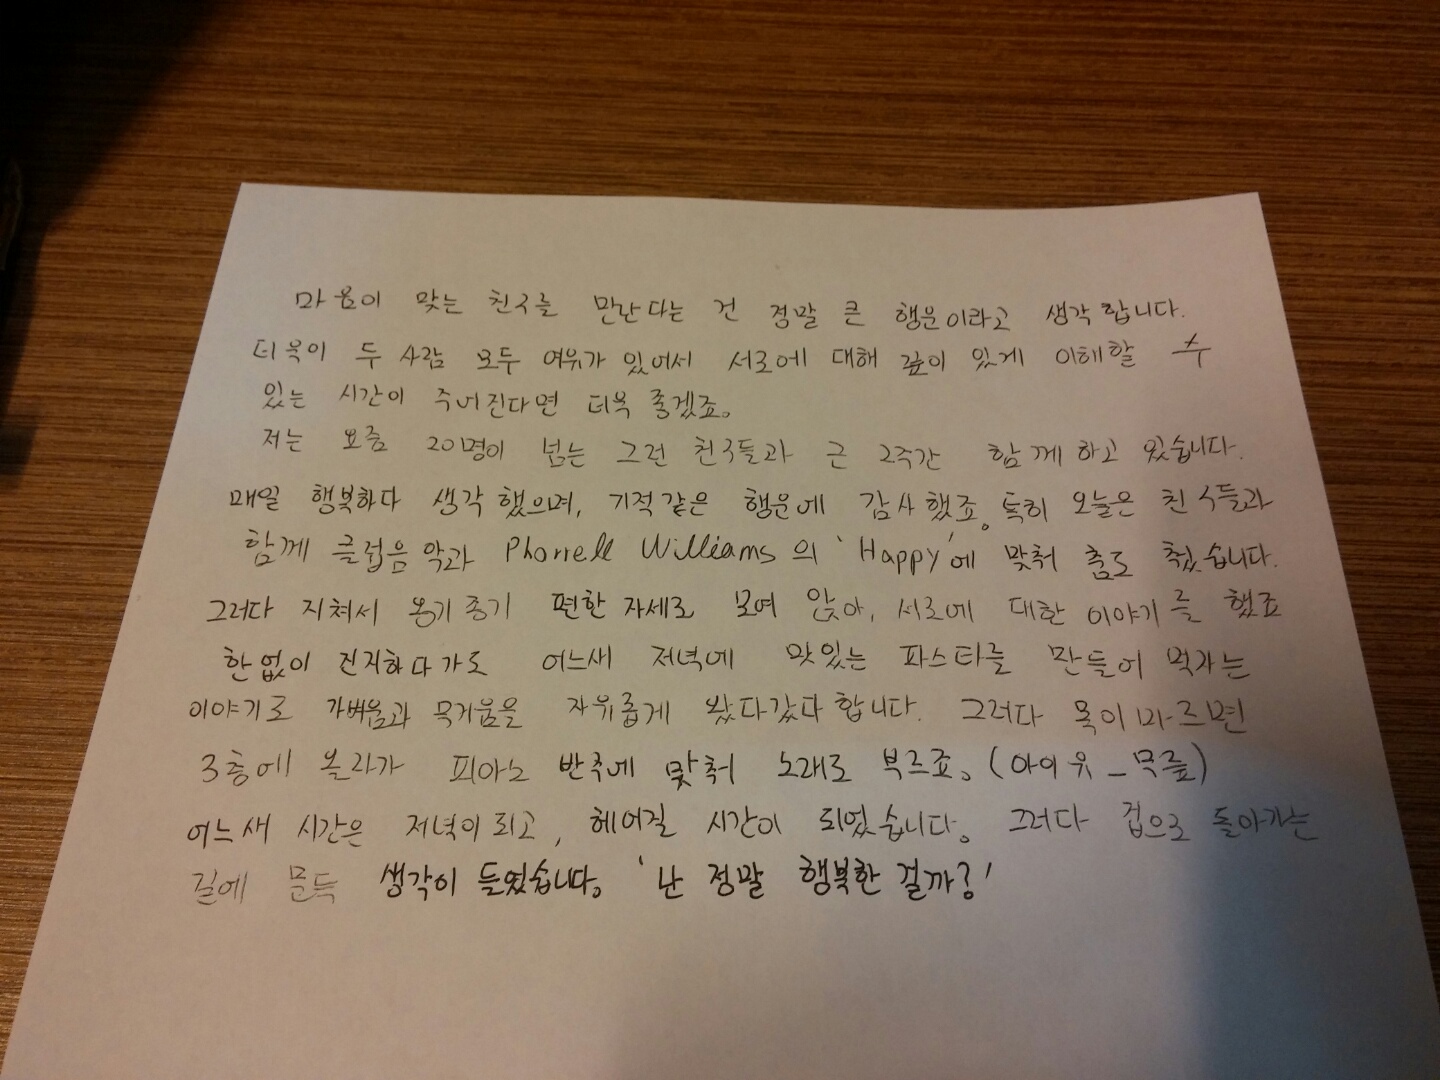 마음이 맞는 친구를 만난다는 건 정말 큰 행운이라고 생각합니다.
더욱이 두 사람 모두 여유가 있어서 서로에 대해 깊이 있게 이해할 수
있는 시간이 주어진다면 더욱 좋겠죠.
저는 요즘 20명이 넘는 그런 친구들과 근 2주간 함께하고 있습니다.
매일 행복하다 생각했으며, 기적같은 행운에 감사했죠. 특히 오늘은 친구들과
함께 클럽음악과 Pharrell Williams의 'Happy'에 맞춰 춤도 췄습니다.
그러다 지쳐서 옹기종기 편한 자세로 모여 앉아, 서로에 대한 이야기를 했죠
한없이 진지하다가도 어느새 저녁에 맛있는 파스타를 만들어 먹자는
이야기로 가벼움과 무거움을 자유롭게 왔다갔다 합니다. 그러다 목이 마르면
3층에 올라가 피아노 반주에 맞춰 노래도 부르죠. (아이유_무릎)
어느새 시간은 저녁이 되고, 헤어질 시간이 되었습니다. 그러다 집으로 돌아가는
길에 문득 생각이 들었습니다. '난 정말 행복한 걸까?'